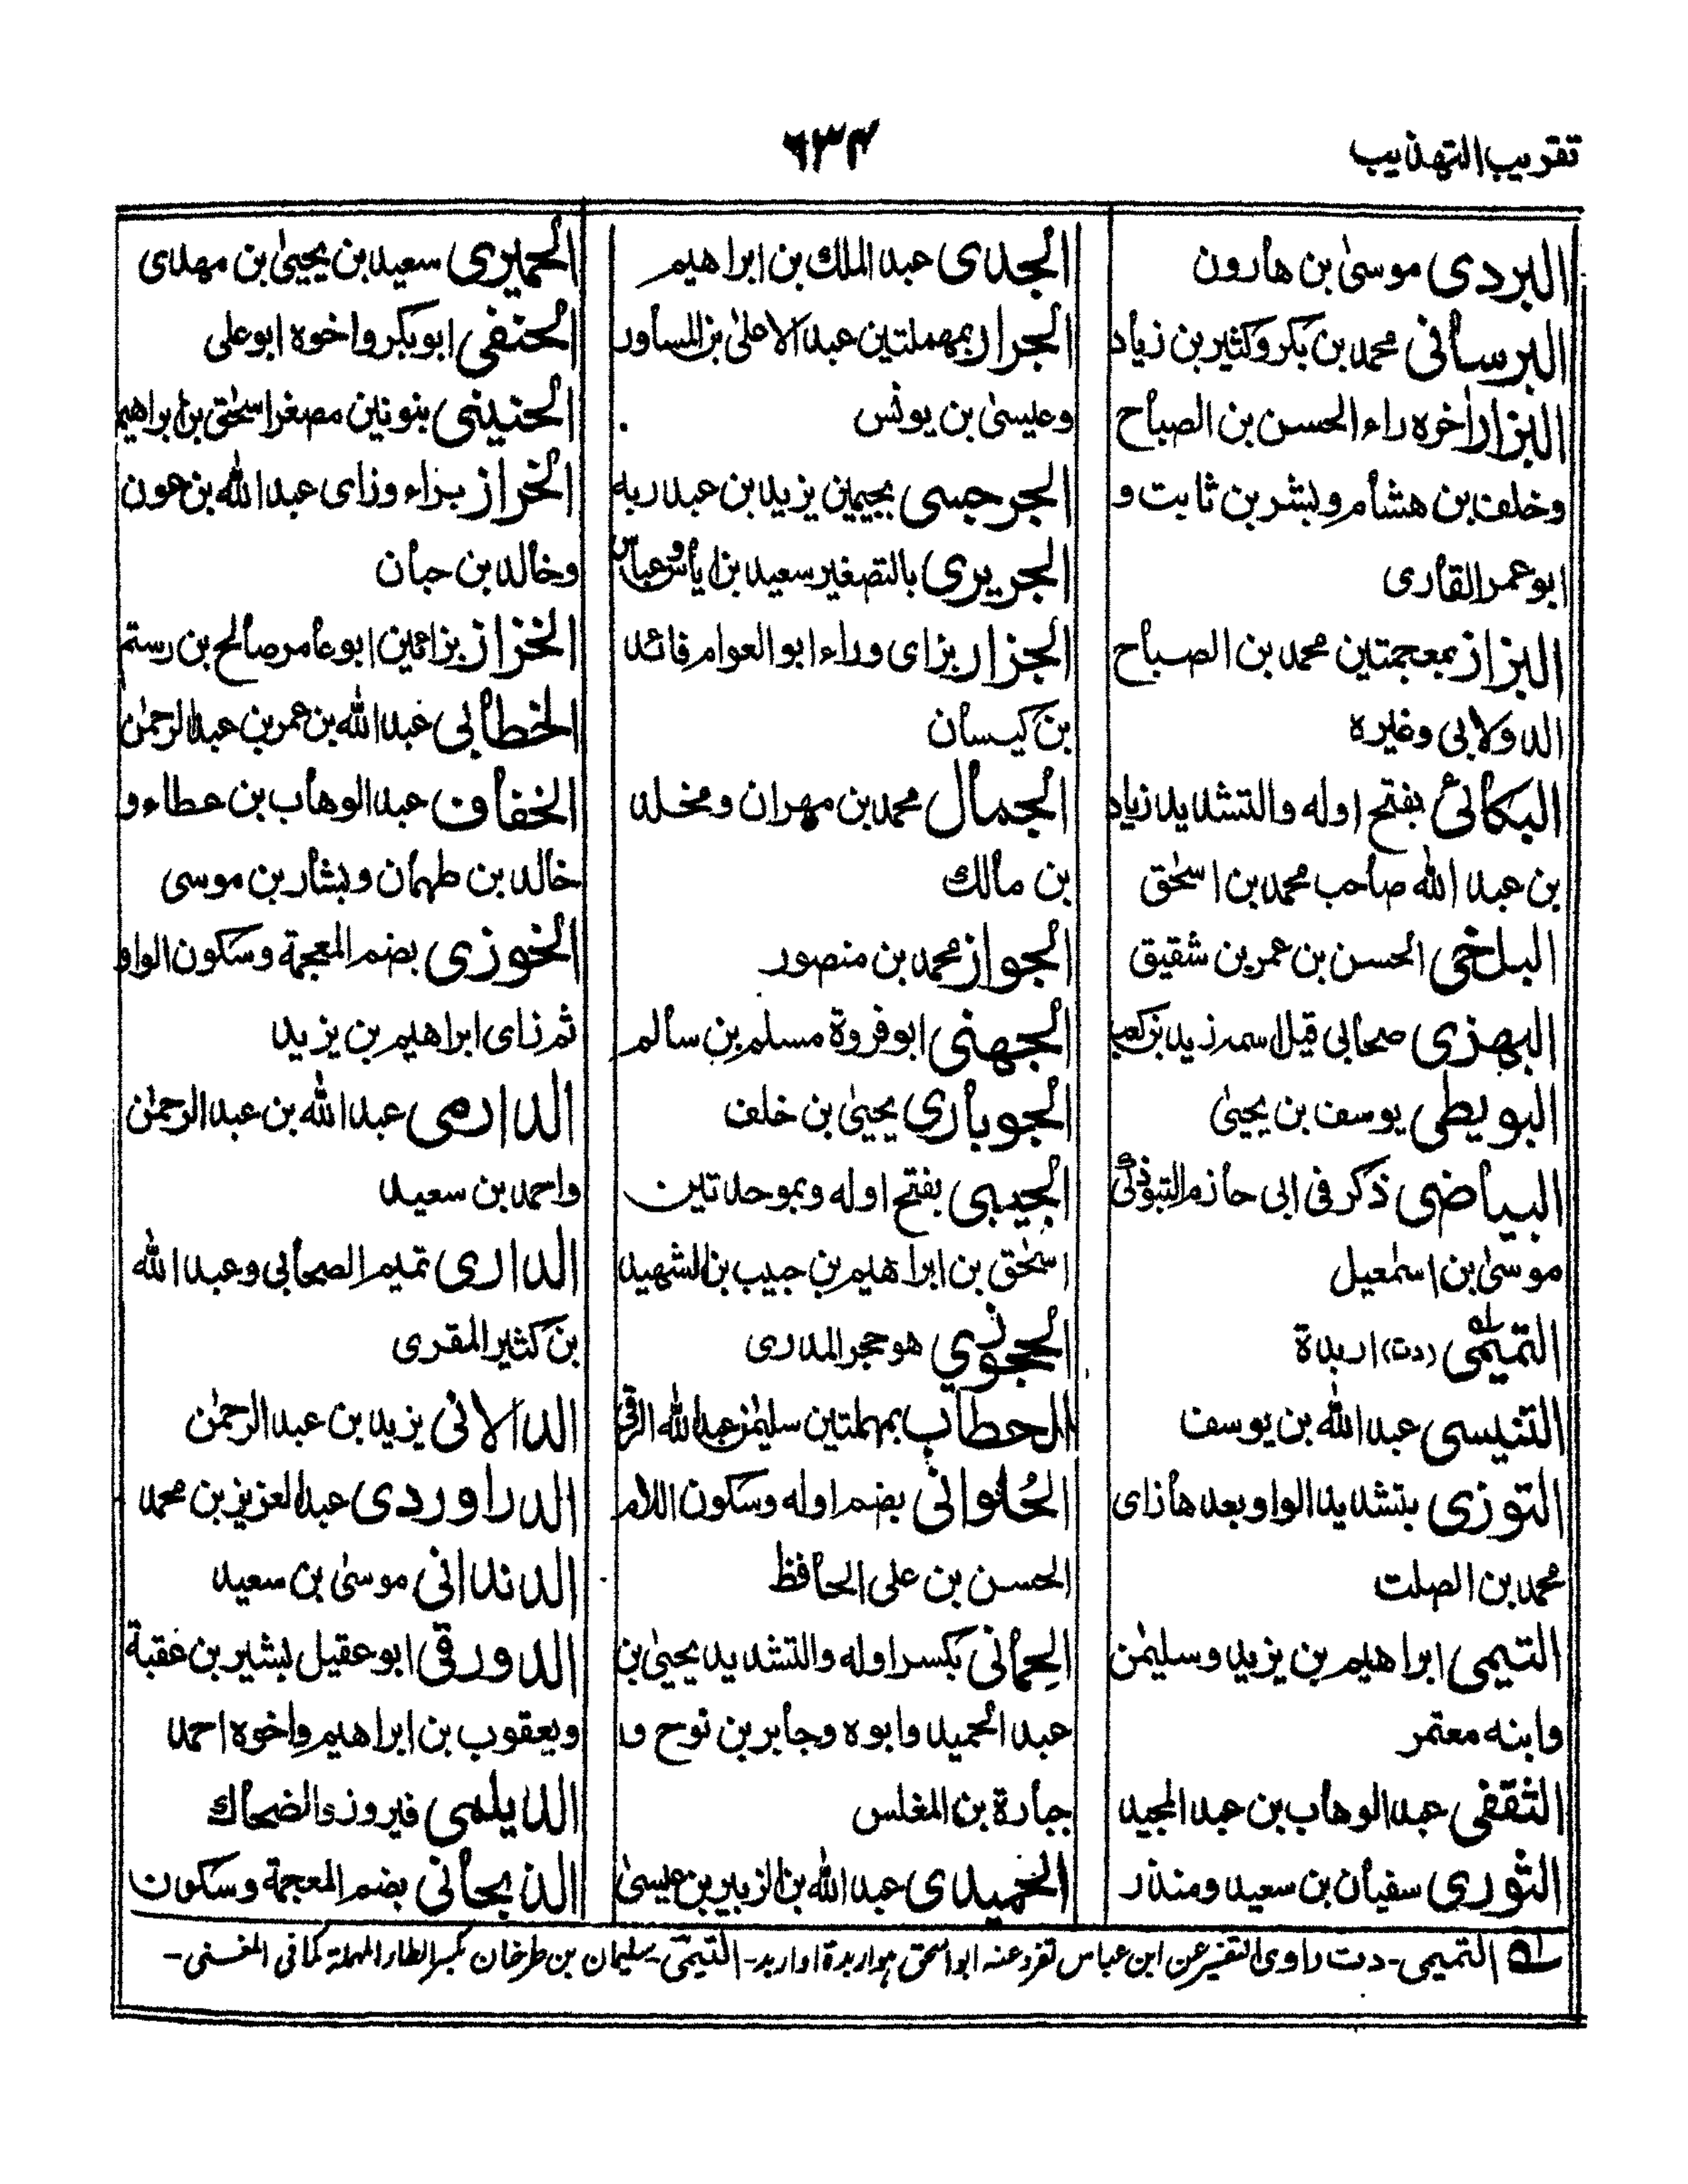 تقريب التهذيب
٦٣٤
البردى موسىٰ بن هارون
البرسانى محمد بن بكر وكثير بن زياد
البزار اٰخره راء الحسن بن الصباح
وخلف بن هشام وبشر بن ثابت و
ابو عمر القارى
البزاز بمعجمتين محمد بن الصباح
الدولابى وغيره
البكائى بفتح اوله والتشديد زياد
بن عبد الله صاحب محمد بن اسحٰق
البلخى الحسن بن عمر بن شقيق
البهزى صحابى قيل اسمه زيد بن كعب
البويطى يوسف بن يحيىٰ
البياضى ذكر فى ابى حازم التبوذكى
موسىٰ بن اسمٰعيل
التميمى (دت) اربدة
التنيسى عبد الله بن يوسف
التوزى بتشديد الواو بعدها زاى
محمد بن الصلت
التيمى ابراهيم بن يزيد وسليمٰن
وابنه معتمر
الثقفى عبد الوهاب بن عبد المجيد
الثورى سفيان بن سعيد ومنذر
الجدى عبد الملك بن ابراهيم
الجرار بمهملتين عبد الاعلىٰ بن المساور
وعيسىٰ بن يونس
الجرجسى بجيمين يزيد بن عبد ربه
الجريرى بالتصغير سعيد بن اياس وعباس
الجزار بزاى وراء ابو العوام فائد
بن كيسان
الجمال محمد بن مهران ومخلد
بن مالك
الجواز محمد بن منصور
الجهنى ابو فروة مسلم بن سالم
الجوبارى يحيىٰ بن خلف
الجيبى بفتح اوله وبموحدتين
اسحٰق بن ابراهيم بن حبيب بن الشهيد
الحجورى هو حجر المدرى
الحطاب بمهملتين سليمٰن بن عبيد الله الرقى
الحُلوانى بضم اوله وسكون اللام
الحسن بن على الحافظ
الحِمانى بكسر اوله والتشديد يحيىٰ بن
عبد الحميد وابوه وجابر بن نوح و
جبارة بن المغلس
الحميدى عبد الله بن الزبير بن عيسىٰ
الحميرى سعيد بن يحيىٰ بن مهدى
الحنفى ابو بكر واخوه ابو على
الحنينى بنونين مصغرا اسحٰق بن ابراهيم
الخراز براء وزاى عبد الله بن عون
وخالد بن حبان
الخزاز بزائين ابو عامر صالح بن رستم
الخطابى عبد الله بن عمر بن عبد الرحمٰن
الخفاف عبد الوهاب بن عطاء و
خالد بن طهمان وبشار بن موسى
الخوزى بضم المعجمة وسكون الواو
ثم زاى ابراهيم بن يزيد
الدارمى عبد الله بن عبد الرحمٰن
واحمد بن سعيد
الدارى تميم الصحابى وعبد الله
بن كثير المقرى
الدالانى يزيد بن عبد الرحمٰن
الدراوردى عبد العزيز بن محمد
الدندانى موسىٰ بن سعيد
الدورقى ابو عقيل بشير بن عقبة
ويعقوب بن ابراهيم واخوه احمد
الديلمى فيروز والضحاك
الذبحانى بضم المعجمة وسكون
له التميمى - دت راوى التفسير عن ابن عباس تفرد عنه ابو اسحق هو اربدة او اربد - التيمى - سليمان بن طرخان بكسر الطاء المهملة كما فى المغنى -